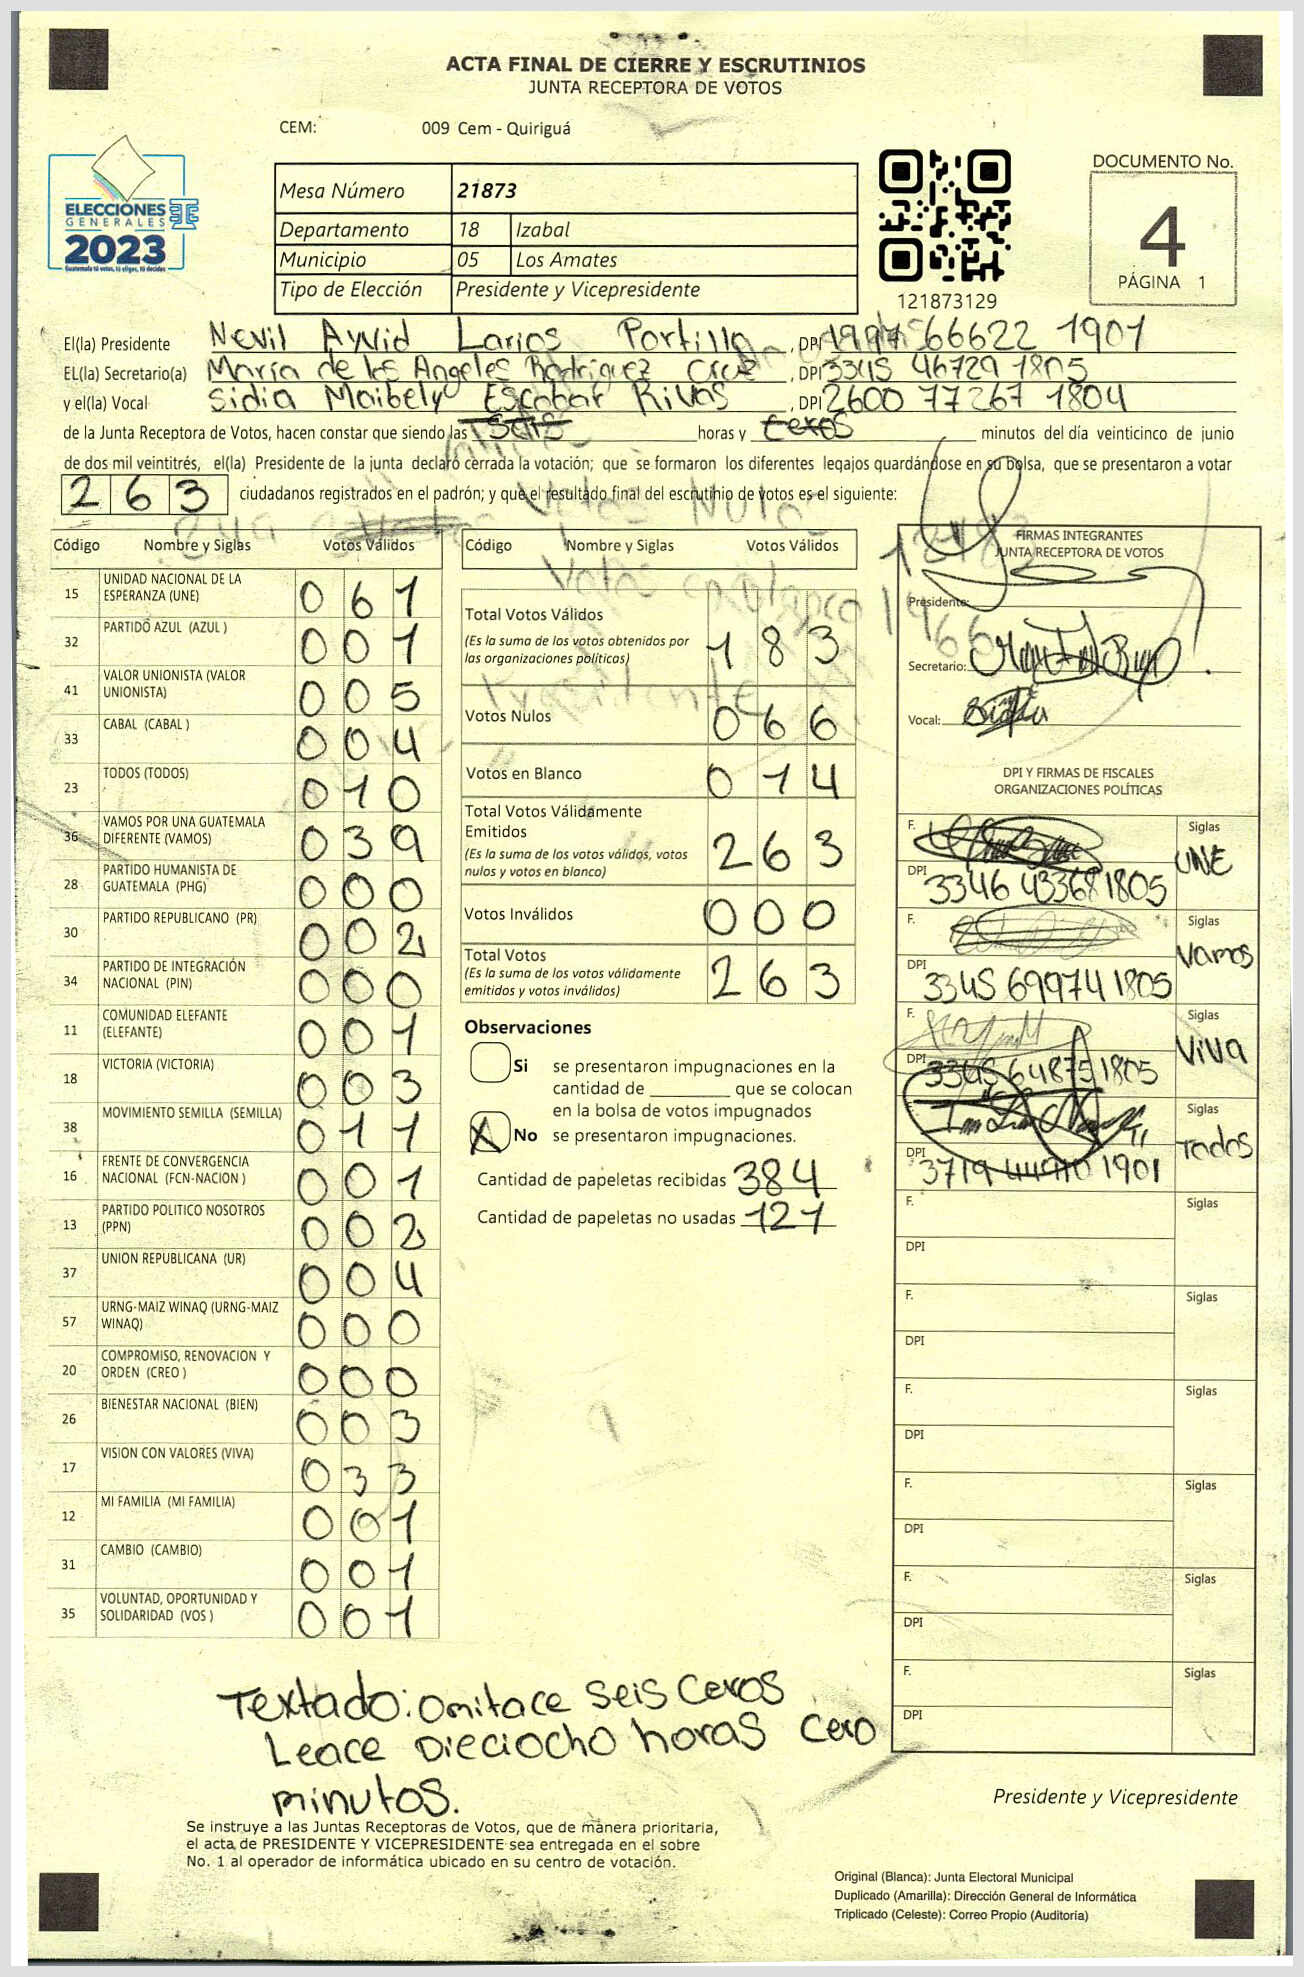 ACTA FINAL DE CIERRE Y ESCRUTINIOS
JUNTA RECEPTORA DE VOTOS
CEM: 009 Cem - Quiriguá
ELECCIONES
GENERALES
2023
Guatemala tú votas, tú eliges, tú decides
Mesa Número 21873
Departamento 18 Izabal
Municipio 05 Los Amates
Tipo de Elección Presidente y Vicepresidente
121873129
DOCUMENTO No.
4
PÁGINA 1
El(la) Presidente Nevil Ayvid Larios Portillo, DPI 1997 66622 1901
EL(la) Secretario(a) María de los Angeles Rodríguez Cruz, DPI 3345 46729 1805
y el(la) Vocal Sidia Maibely Escobar Rivas, DPI 2600 77267 1804
de la Junta Receptora de Votos, hacen constar que siendo las seis horas y ceros minutos del día veinticinco de junio
de dos mil veintitrés, el(la) Presidente de la junta declaró cerrada la votación; que se formaron los diferentes legajos guardándose en su bolsa, que se presentaron a votar
263 ciudadanos registrados en el padrón; y que el resultado final del escrutinio de votos es el siguiente:
Código Nombre y Siglas Votos Válidos
15 UNIDAD NACIONAL DE LA ESPERANZA (UNE) 061
32 PARTIDO AZUL (AZUL ) 001
41 VALOR UNIONISTA (VALOR UNIONISTA) 005
33 CABAL (CABAL ) 004
23 TODOS (TODOS) 010
36 VAMOS POR UNA GUATEMALA DIFERENTE (VAMOS) 039
28 PARTIDO HUMANISTA DE GUATEMALA (PHG) 000
30 PARTIDO REPUBLICANO (PR) 002
34 PARTIDO DE INTEGRACIÓN NACIONAL (PIN) 000
11 COMUNIDAD ELEFANTE (ELEFANTE) 001
18 VICTORIA (VICTORIA) 003
38 MOVIMIENTO SEMILLA (SEMILLA) 011
16 FRENTE DE CONVERGENCIA NACIONAL (FCN-NACION ) 001
13 PARTIDO POLITICO NOSOTROS (PPN) 002
37 UNION REPUBLICANA (UR) 004
57 URNG-MAIZ WINAQ (URNG-MAIZ WINAQ) 000
20 COMPROMISO, RENOVACION Y ORDEN (CREO ) 000
26 BIENESTAR NACIONAL (BIEN) 003
17 VISION CON VALORES (VIVA) 033
12 MI FAMILIA (MI FAMILIA) 001
31 CAMBIO (CAMBIO) 001
35 VOLUNTAD, OPORTUNIDAD Y SOLIDARIDAD (VOS ) 001
Código Nombre y Siglas Votos Válidos
Total Votos Válidos 183
(Es la suma de los votos obtenidos por
las organizaciones políticas)
Votos Nulos 066
Votos en Blanco 014
Total Votos Válidamente
Emitidos 263
(Es la suma de los votos válidos, votos
nulos y votos en blanco)
Votos Inválidos 000
Total Votos 263
(Es la suma de los votos válidamente
emitidos y votos inválidos)
Observaciones
Si se presentaron impugnaciones en la
cantidad de ________ que se colocan
en la bolsa de votos impugnados
X No se presentaron impugnaciones.
Cantidad de papeletas recibidas 384
Cantidad de papeletas no usadas 121
FIRMAS INTEGRANTES
JUNTA RECEPTORA DE VOTOS
Presidente:
Secretario:
Vocal:
DPI Y FIRMAS DE FISCALES
ORGANIZACIONES POLÍTICAS
F. Siglas
DPI 3346 43368 1805 UNE
F. Siglas
DPI 3345 69974 1805 Vamos
F. Siglas
DPI 3345 64875 1805 Viva
F. Siglas
DPI 3719 44910 1901 Todos
F. Siglas
DPI
F. Siglas
DPI
F. Siglas
DPI
F. Siglas
DPI
F. Siglas
DPI
F. Siglas
DPI
Textado: omitace seis ceros
Leace Dieciocho horas cero
minutos.
Presidente y Vicepresidente
Se instruye a las Juntas Receptoras de Votos, que de manera prioritaria,
el acta de PRESIDENTE Y VICEPRESIDENTE sea entregada en el sobre
No. 1 al operador de informática ubicado en su centro de votación.
Original (Blanca): Junta Electoral Municipal
Duplicado (Amarilla): Dirección General de Informática
Triplicado (Celeste): Correo Propio (Auditoría)